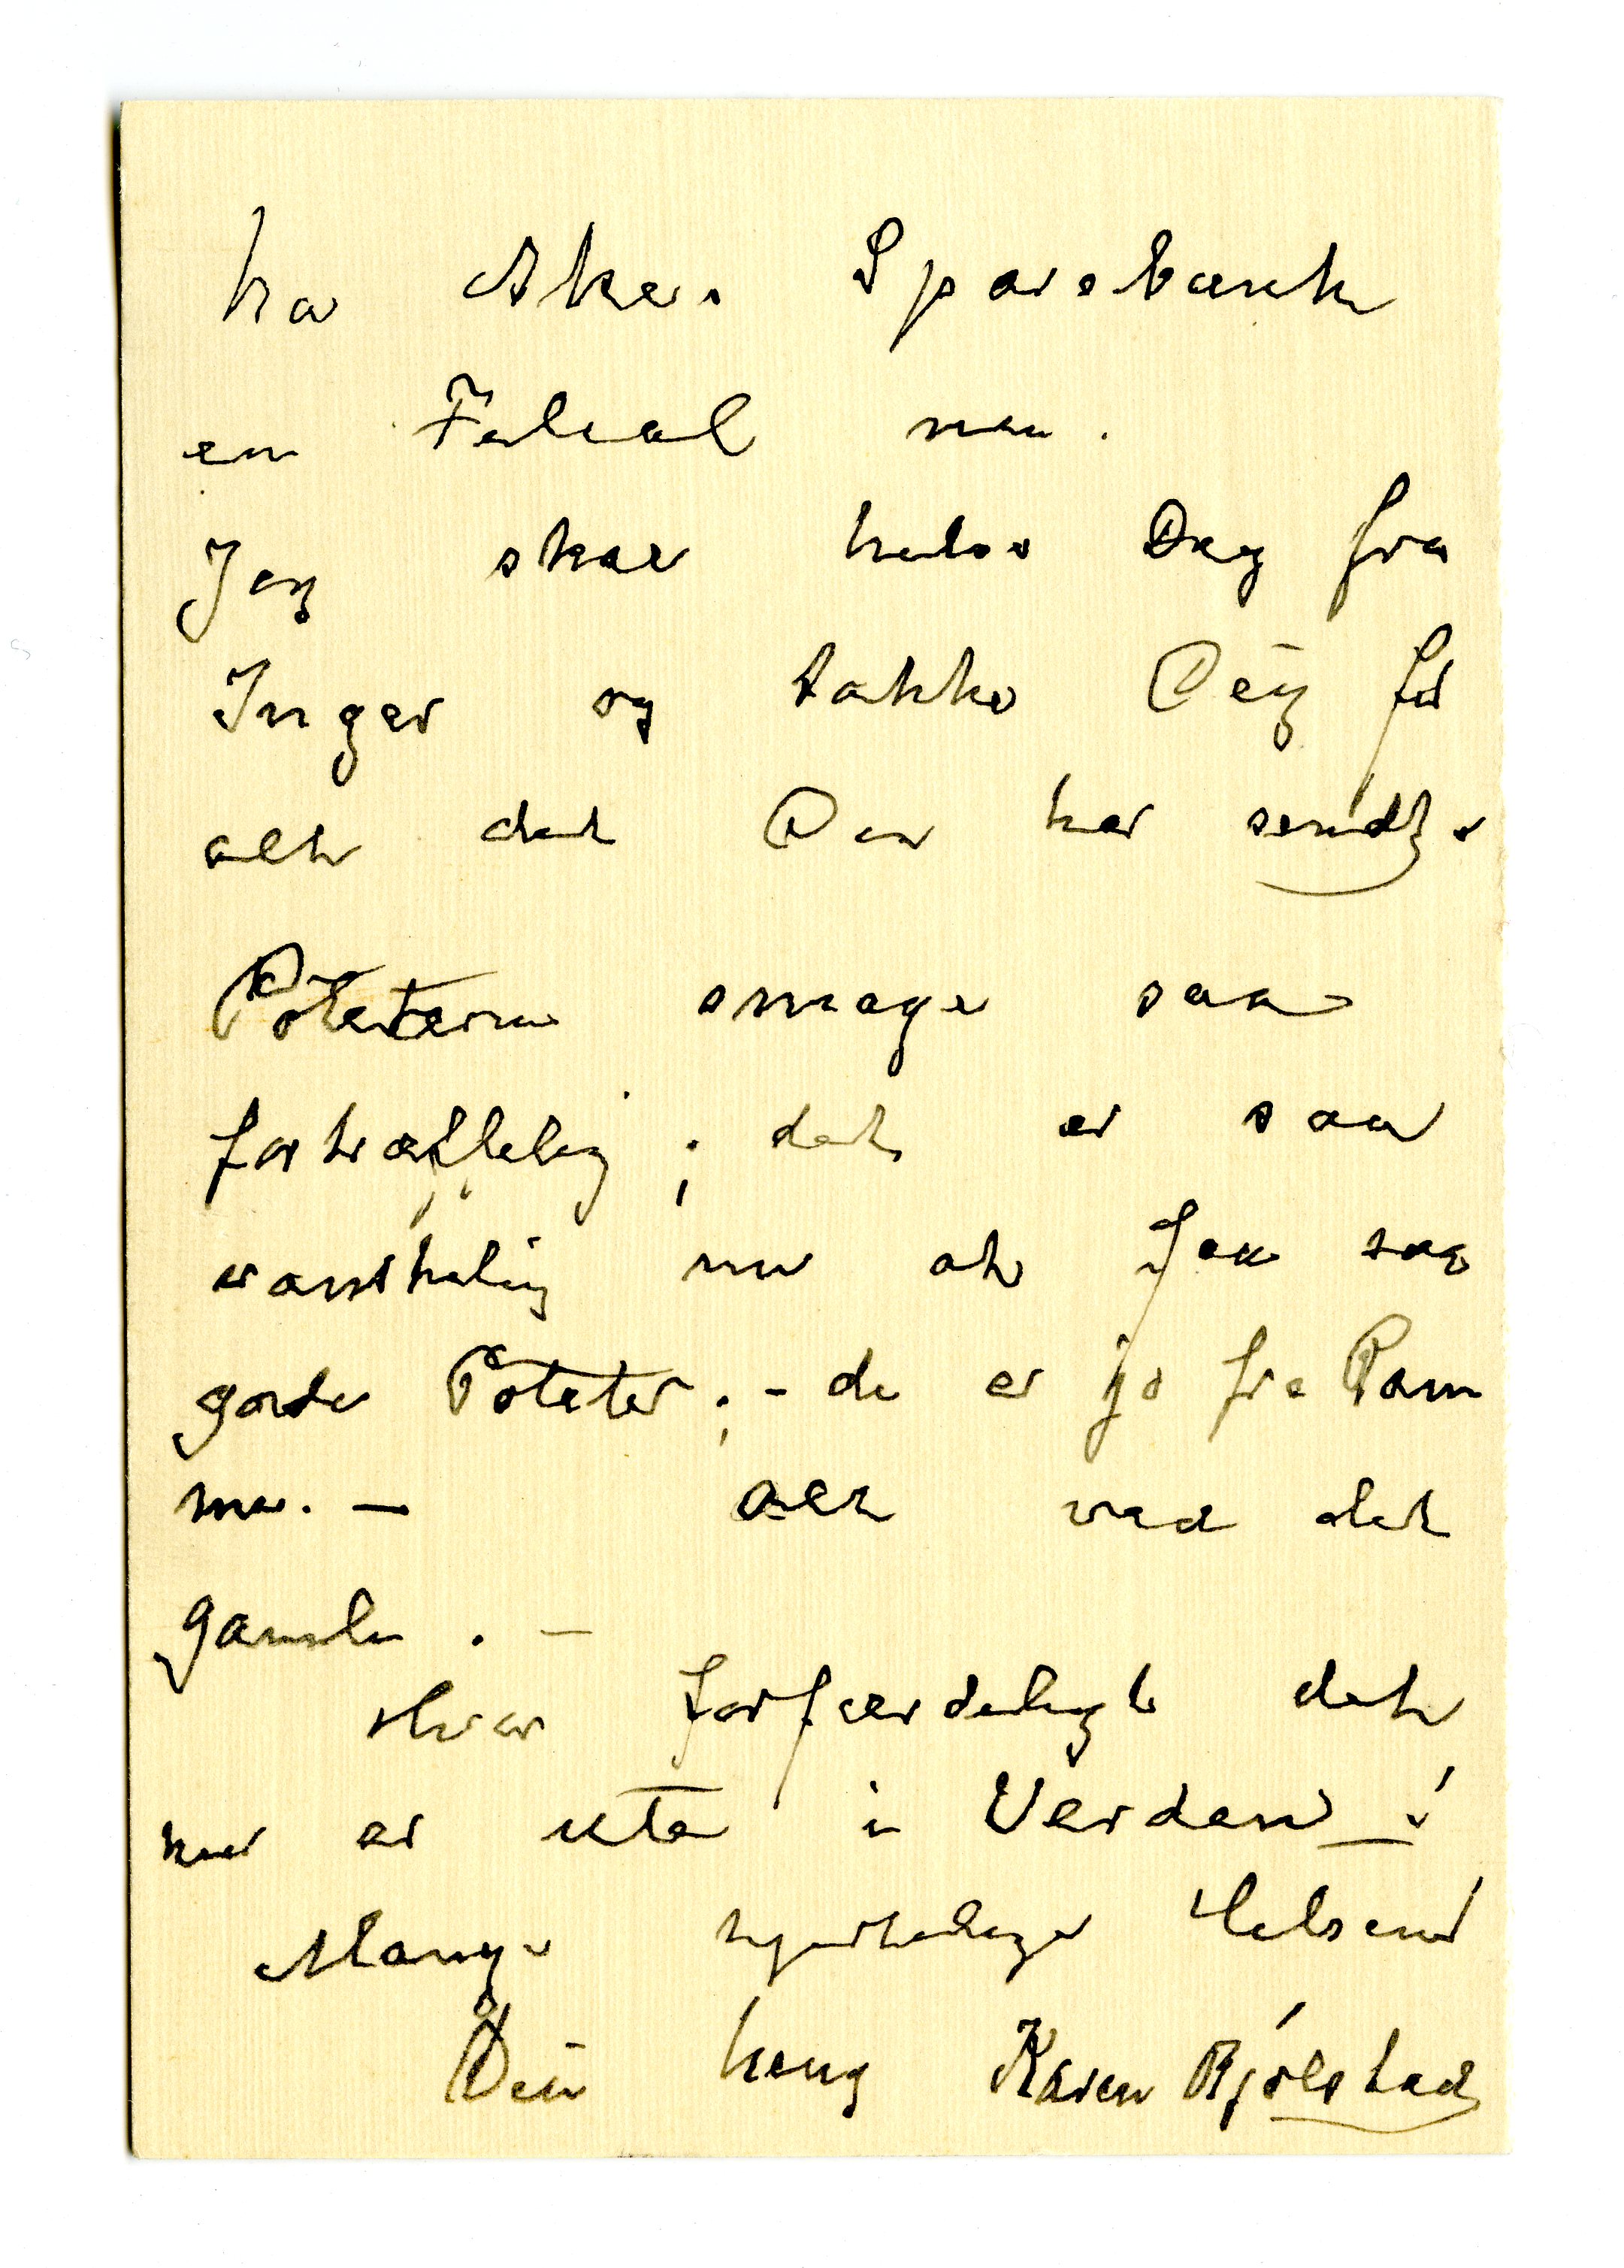 ha Akers Sparebank
en Filial nu.
Jeg skal hilse Dig fra
Inger og takke Dig for
alt det Du har sendt.
Poteterne smager saa
fortræffelig; det er saa
vanskelig nu at faa saa
gode Poteter; - de er jo fra Ram
me. - Alt ved det
gamle. -
Hvor forfærdeligt det
nu er ute i Verden!
Mange hjertelige Helsener
Din heng Karen Bjølstad